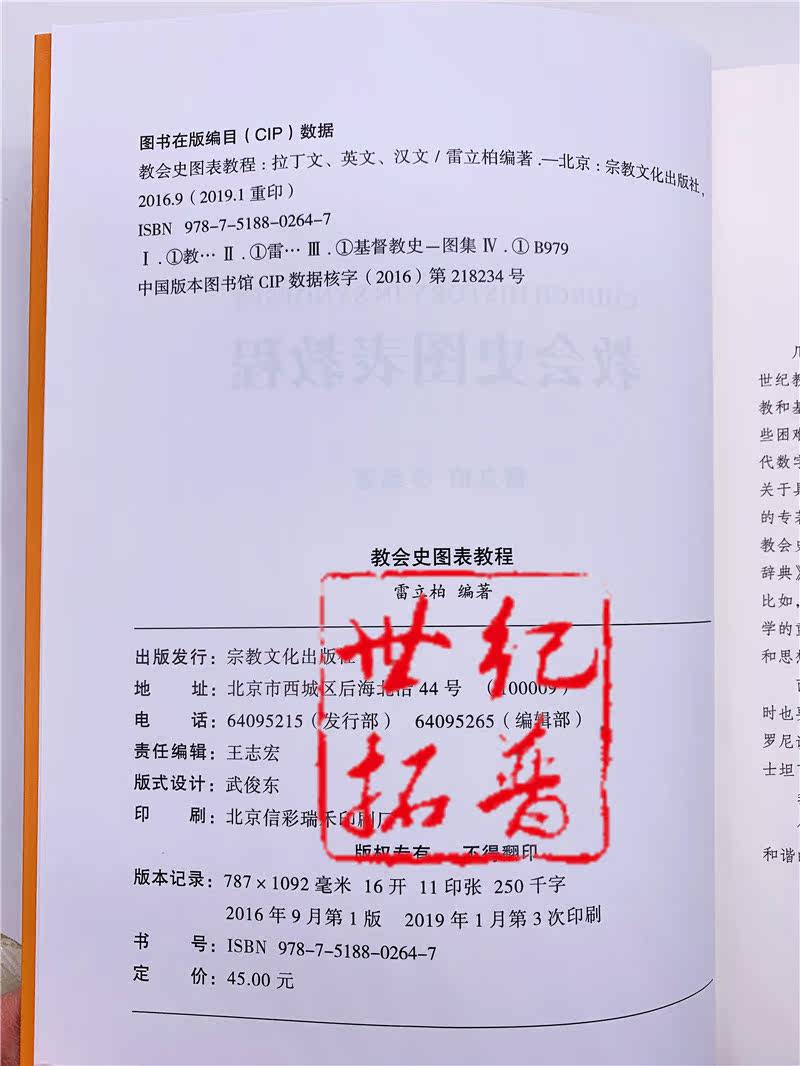 图书在版编目（CIP）数据
教会史图表教程：拉丁文、英文、汉文 / 雷立柏编著 .—北京：宗教文化出版社，
2016.9（2019.1 重印）
ISBN 978-7-5188-0264-7
Ⅰ.①教… Ⅱ.①雷… Ⅲ.①基督教史—图集 Ⅳ.① B979
中国版本图书馆 CIP 数据核字（2016）第 218234 号
教会史图表教程
教会史图表教程
雷立柏 编著
出版发行：宗教文化出版社
地 址：北京市西城区后海北沿 44 号 （100009）
电 话：64095215（发行部） 64095265（编辑部）
责任编辑：王志宏
版式设计：武俊东
印 刷：北京信彩瑞禾印刷厂
版权专有 不得翻印
版本记录：787×1092 毫米 16 开 11 印张 250 千字
2016 年 9 月第 1 版 2019 年 1 月第 3 次印刷
书 号：ISBN 978-7-5188-0264-7
定 价：45.00 元
世纪
拓普
世纪教
教和基
些困难
代数字
关于具
的专著
教会史
辞典》
比如，
学的重
和思想
时也要
罗尼认
士坦丁
和谐的